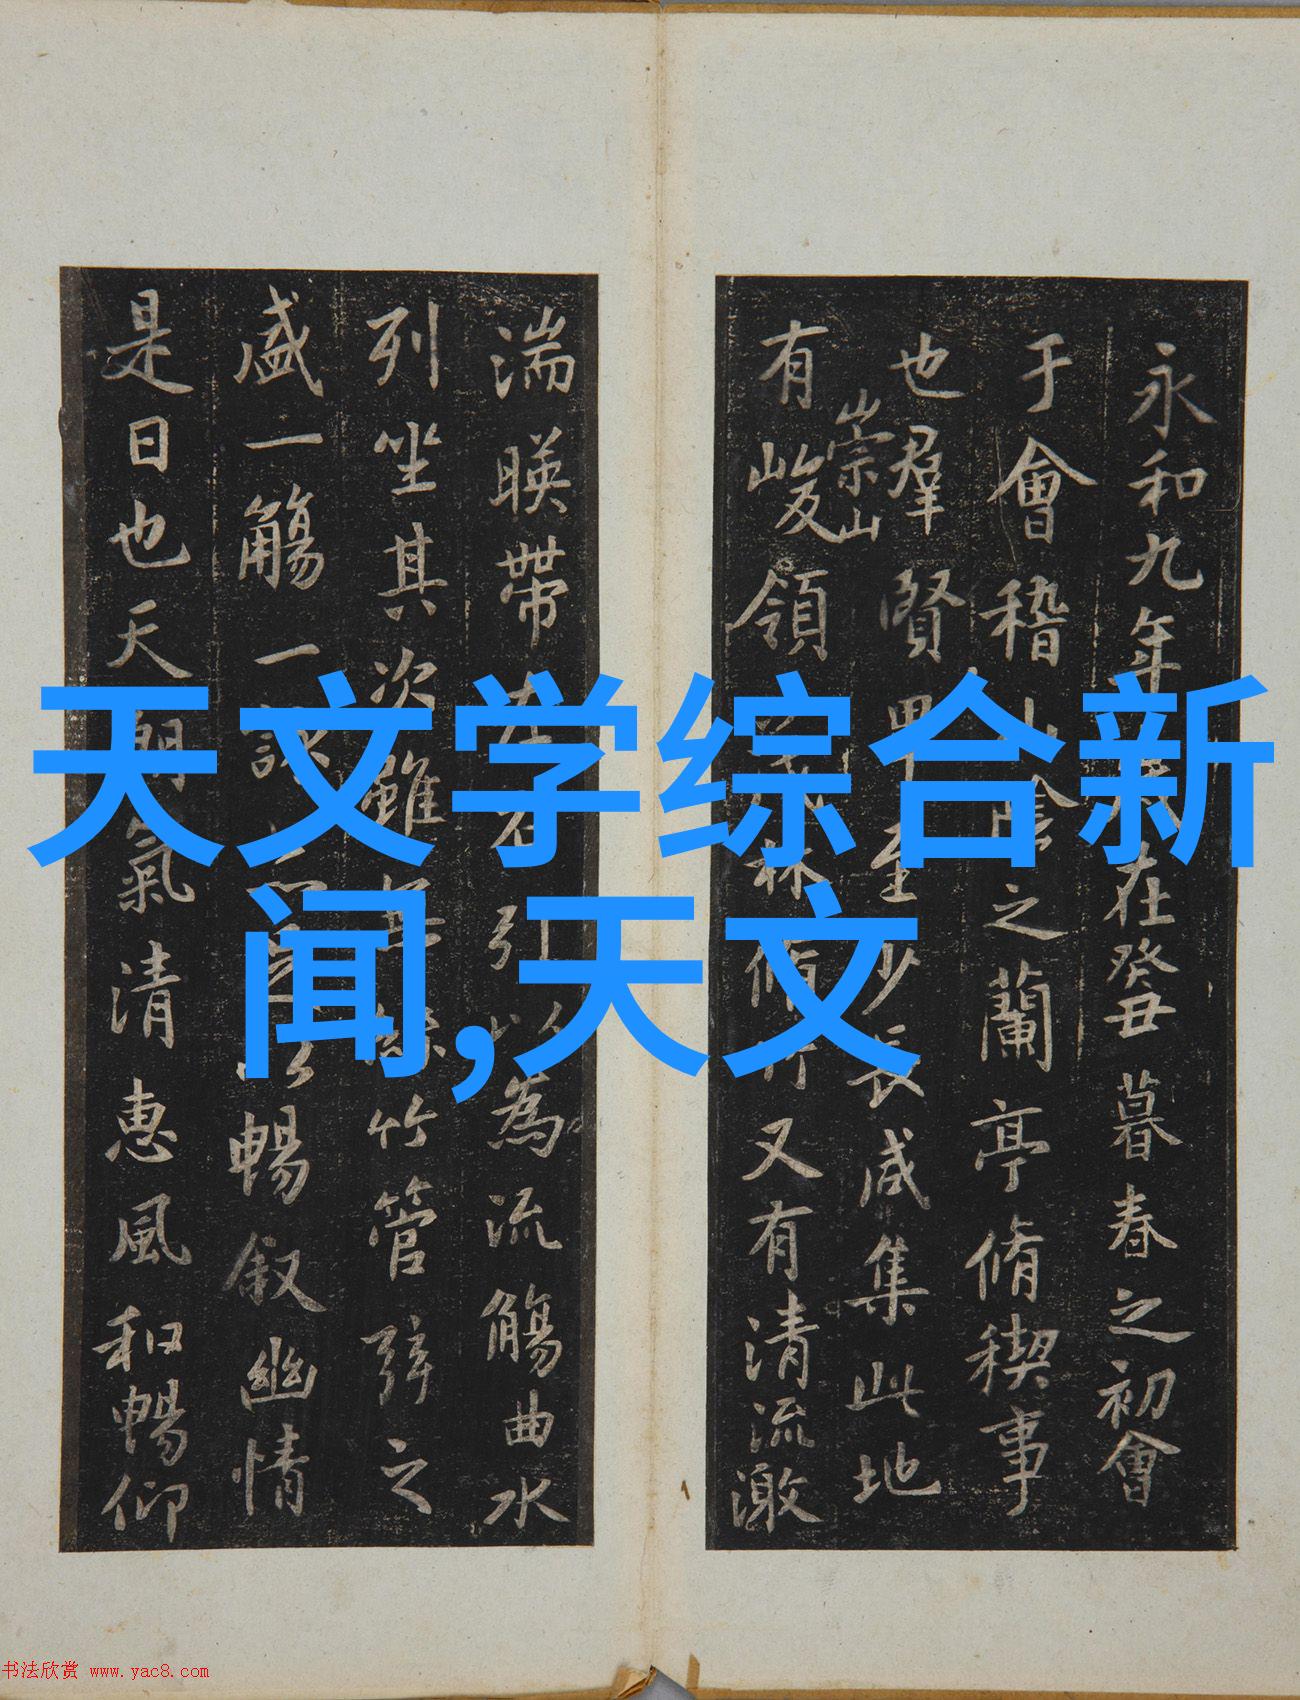 天文学综合新
闻,天文
永和九年歲在癸丑暮春之初會
于會稽山陰之蘭亭脩禊事
也羣賢畢至少長咸集此地
崇山
有峻領茂林脩竹又有清流激
湍暎帶左右引以為流觴曲水
列坐其次雖無絲竹管弦之
盛一觴一詠以暢叙幽情
是日也天朗氣清惠風和暢仰
书法欣赏 www.yac8.com